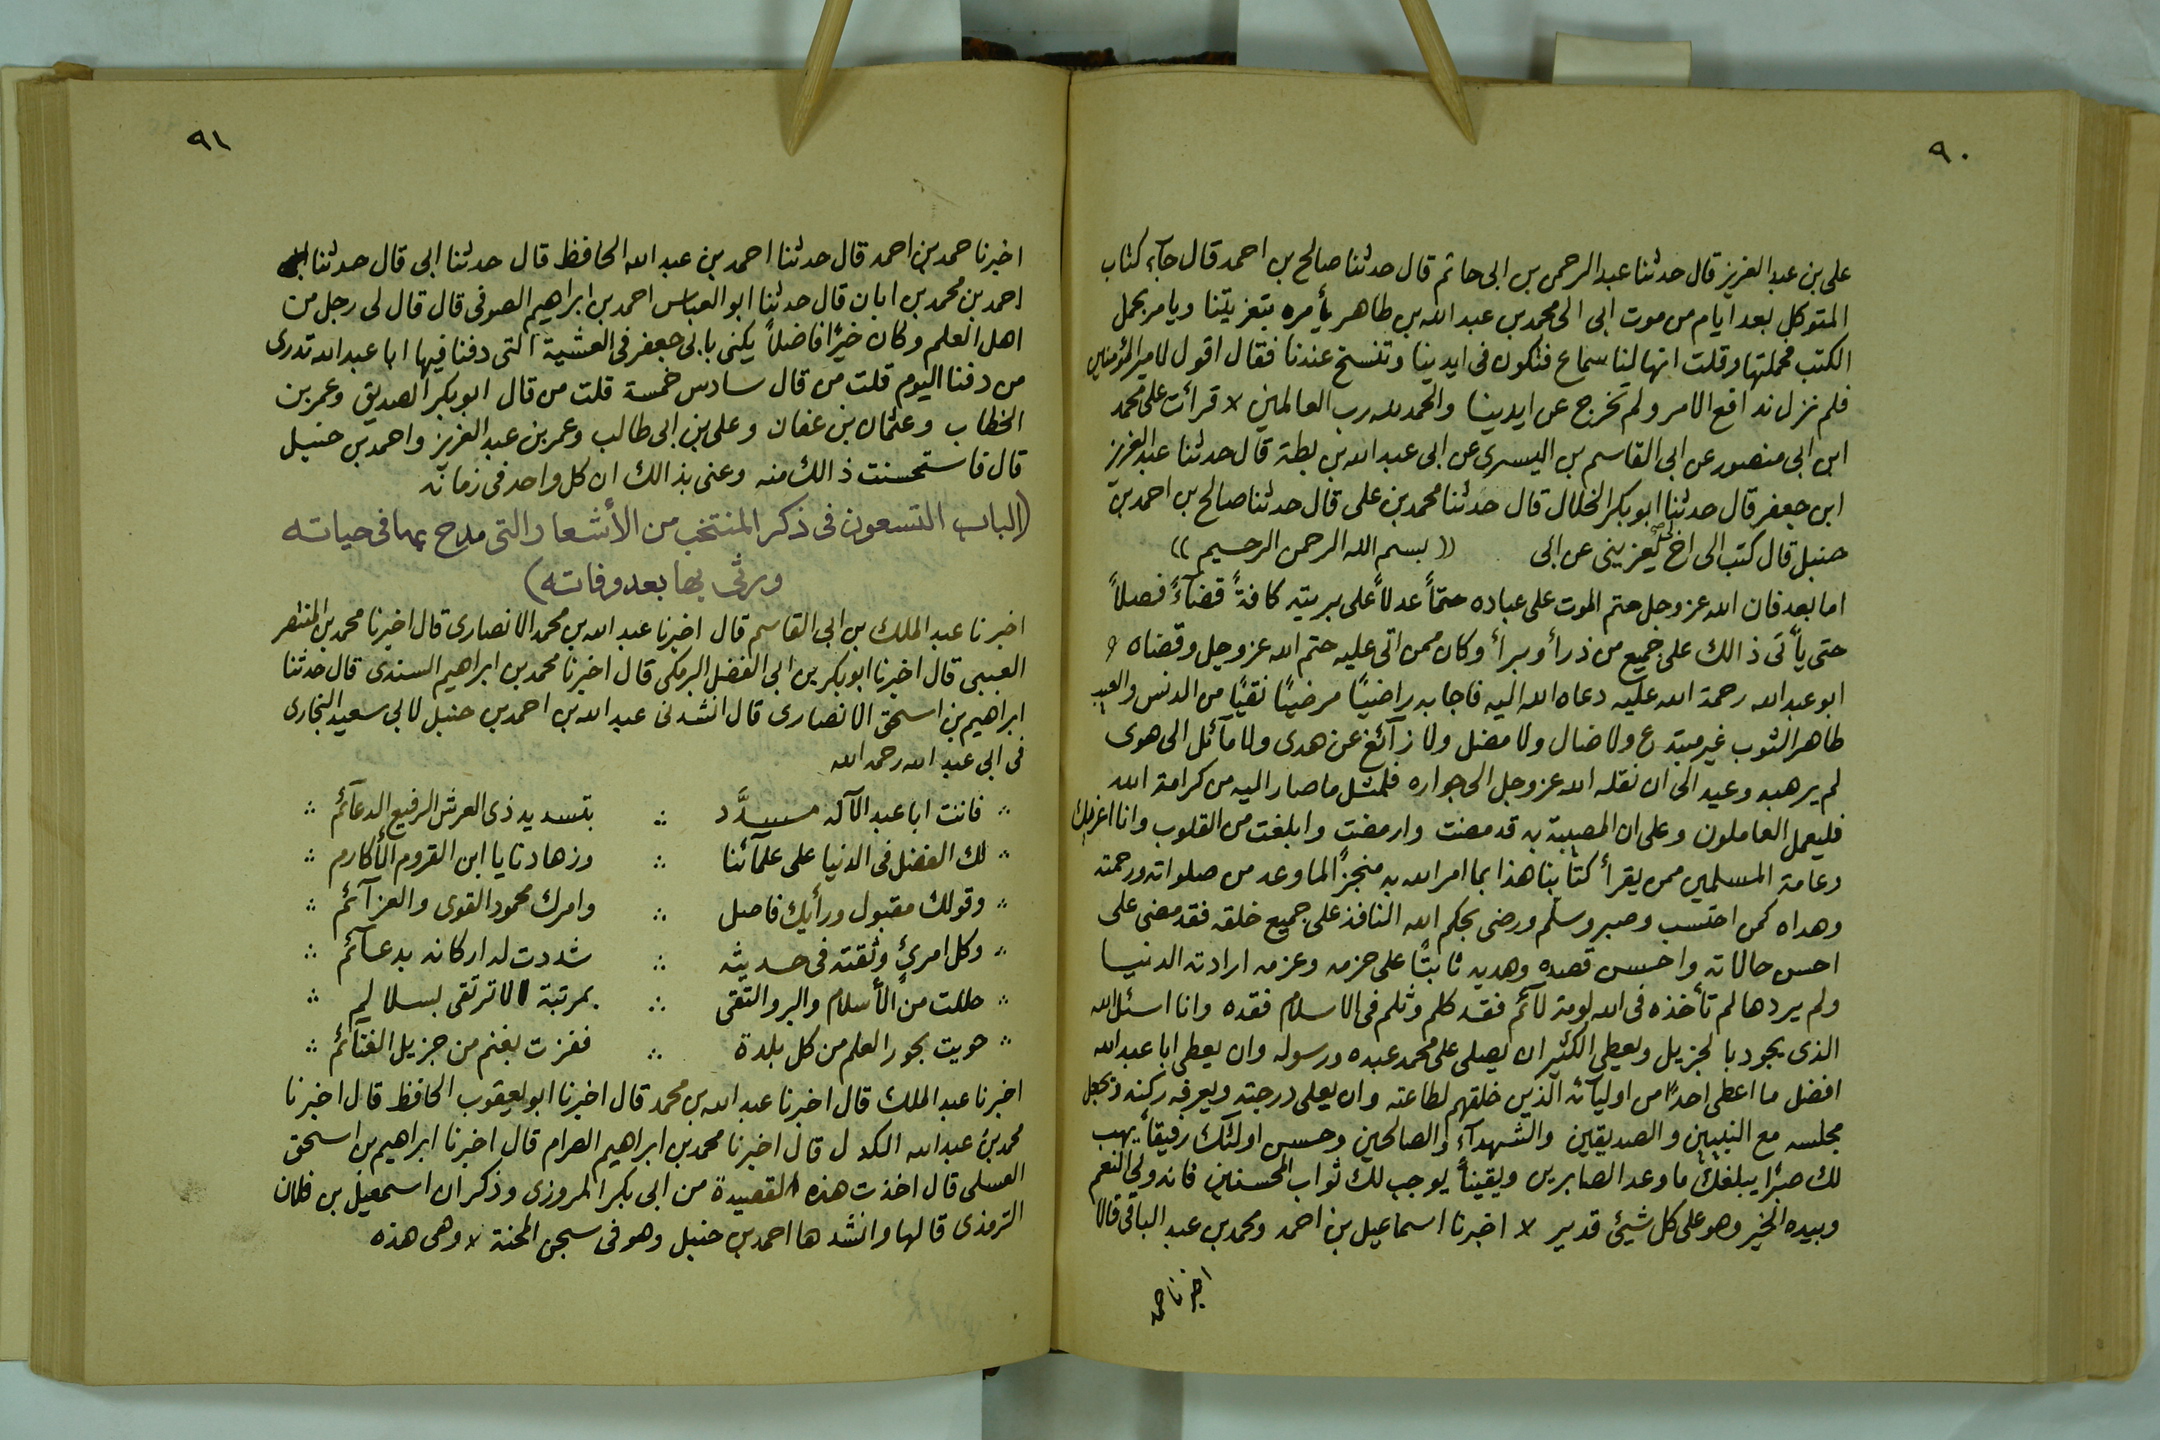 ٩٠
على بن عبد العزيز قال حدثنا عبد الرحمن بن ابى حاتم قال حدثنا صالح بن احمد قال جآء كتاب
المتوكل بعد ايام من موت ابى الى محمد بن عبد الله بن طاهر يأمره بتعزيتنا ويامر بحمل
الكتب فحملتها وقلت انها لنا سماع فتكون فى ايدينا وتنسخ عندنا فقال اقول لامير المؤمنين
فلم نزل ندافع الامر ولم تخرج عن ايدينا والحمد لله رب العالمين لا قرائت على محمد
ابن ابى منصور عن ابى القاسم بن اليسرى عن ابى عبد الله بن بطة قال حدثنا عبد العزيز
ابن جعفر قال حدثنا ابو بكر الخلال قال حدثنا محمد بن على قال حدثنا صالح بن احمد بن
حنبل قال كتب الى اخ يعزينى عن ابى (( بسم الله الرحمن الرحيم ))
اما بعد فان الله عز وجل حتم الموت على عباده حتمًا عدلاً على بريته كافةً قضآءً فصلاً
حتى يأتى ذالك على جميع من ذرأ وبرأ وكان ممن اتى عليه حتم الله عز وجل وقضاه
ابو عبد الله رحمة الله عليه دعاه الله اليه فاجابه راضيًا مرضيًا نقيًا من الدنس والعيب
طاهر الثوب غير مبتدع ولا ضال ولا مضل ولا زآئغ عن هدى ولا مآئل الى هوى
لم يرهبه وعيد الى ان نقله الله عز وجل الى جواره فلمثل ما صار اليه من كرامة الله
فليعمل العاملون وعلى ان المصيبة به قد مضت وارمضت وابلغت من القلوب وانا اعزيك
وعامة المسلمين ممن يقرأ كتابنا هذا بما امر الله به منجزًا لما وعد من صلواته ورحمته
وهداه كمن احتسب وصبر وسلم ورضى بحكم الله النافذ على جميع خلقه فقد مضى على
احسن حالاته واحسن قصده وهديه ثابتًا على حزمه وعزمه ارادته الدنيا
ولم يردها لم تأخذه فى الله لومة لآئم فقد كلم وثلم فى الاسلام فقده وانا اسئل الله
الذى يجود بالجزيل ويعطى الكثير ان يصلى على محمد عبده ورسوله وان يعطى ابا عبد الله
افضل ما اعطى احدًا من اوليآئه الذين خلقهم لطاعته وان يعلى درجته ويعرفه ركنه ويجعل
مجلسه مع النبيين والصديقين والشهدآء والصالحين وحسن اولئك رفيقًا يهب
لك صبرًا يبلغك ما وعد الصابرين ويقينًا يوجب لك ثواب المحسنين فانه ولى النعم
وبيده الخير وهو على كل شيئ قدير لا اخبرنا اسماعيل بن احمد ومحمد بن عبد الباقى قالا
اخبرنا حمد
٩١
اخبرنا حمد بن احمد قال حدثنا احمد بن عبد الله الحافظ قال حدثنا ابى قال حدثنا
احمد بن محمد بن ابان قال حدثنا ابو العباس احمد بن ابراهيم الصوفى قال قال لى رجل من
اهل العلم وكان خيرًا فاضلاً يكنى بابى جعفر فى العشية التى دفنا فيها ابا عبد الله تدرى
من دفنا اليوم قلت من قال سادس خمسة قلت من قال ابو بكر الصديق وعمر بن
الخطاب وعثمان بن عفان وعلى بن ابى طالب وعمر بن عبد العزيز واحمد بن حنبل
قال فاستحسنت ذالك منه وعنى بذالك ان كل واحد فى زمانه
(الباب التسعون فى ذكر المنتخب من الأشعار التى مدح بها فى حياته
ورثى بها بعد وفاته)
اخبرنا عبد الملك بن ابى القاسم قال اخبرنا عبد الله بن محمد الانصارى قال اخبرنا محمد بن المنتصر
قال اخبرنا ابو بكر بن ابى الفضل البرمكى قال اخبرنا محمد بن ابراهيم السندى قال حدثنا
ابراهيم بن اسحق الانصارى قال انشدنى عبد الله بن احمد بن حنبل لابى سعيد النجارى
فى ابى عبد الله رحمه الله
فانت ابا عبد الآله مسدَّد ∴ بتسديد ذى العرش الرفيع الدعآئم
لك الفضل فى الدنيا على علمآئنا ∴ وزهادنا يا ابن القروم الأكارم
وقولك مقبول ورأيك فاصل ∴ وامرك محمود القوى والعزآئم
وكل امرئ وثقته فى حديثه ∴ شددت له اركانه بدعآئم
حللت من الأسلام والبر والتقى ∴ بمرتبة لا ترتقى بسلاليم
حويت بحور العلم من كل بلدة ∴ ففزت بغنم من جزيل الغنآئم
اخبرنا عبد الملك قال اخبرنا عبد الله بن محمد قال اخبرنا ابو يعقوب الحافظ قال اخبرنا
محمد بن عبد الله قال اخبرنا محمد بن ابراهيم الصرام قال اخبرنا ابراهيم بن اسحق
العسلى قال اخذت هذه القصيدة من ابى بكر المروزى وذكر ان اسمعيل بن فلان
الترمذى قالها وانشدها احمد بن حنبل وهو فى سجن المحنة لا وهى هذه